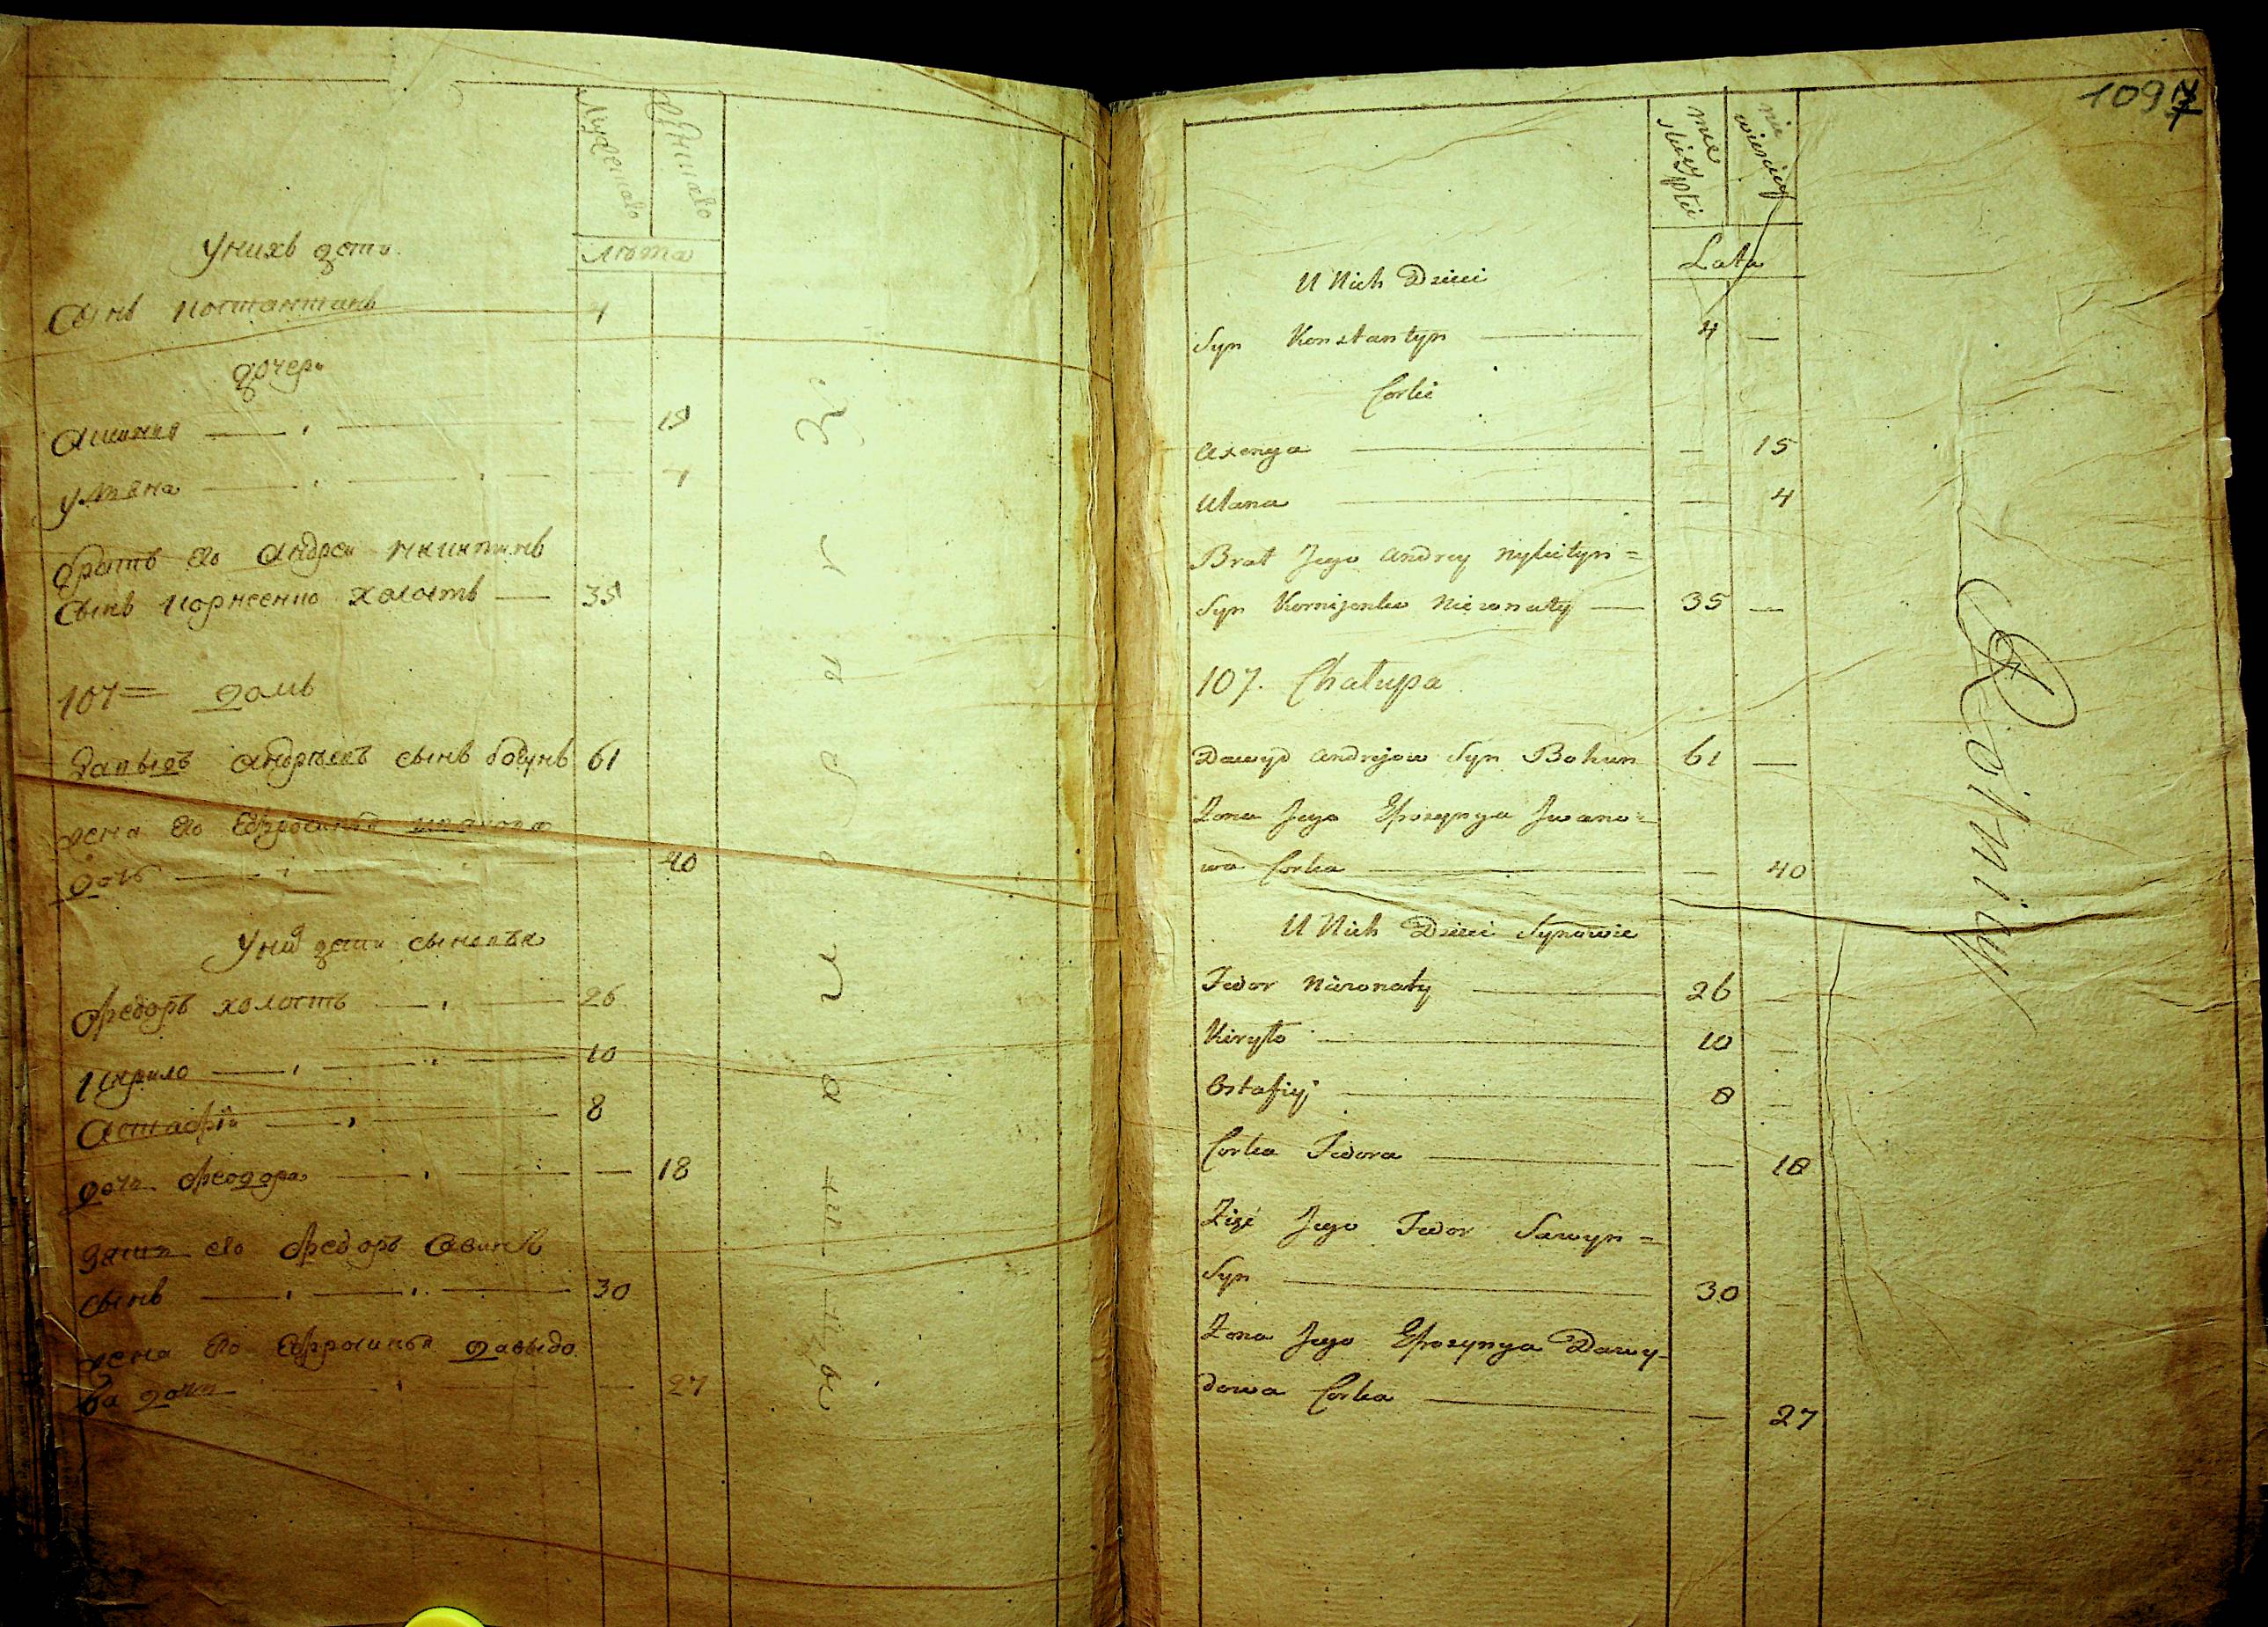 Мужеска
Женска
лѣта
У нихъ дѣти
Сынъ Костантинъ 4
дочери
Аксинья — 15
Уляна — 4
братъ его Андреи Никитинъ
сынъ Корнеенко холостъ — 35
107 = домъ
Давыдъ Андрѣевъ сынъ богунъ 61
жена его Ефросинья Иванова
дочь — 40
У нихъ дети сыновья
Федоръ холостъ — 26
Кирило — 10
Астафiй — 8
дочь Феодора — 18
зять его Федоръ Савинъ
сынъ — 30
жена его Ефросинья давыдо
ва дочь — 27
109
męs
kiey płci
nie
wieściey
Lata
U Nich Dzieci
Syn Konstantyn — 4 —
Corki
Axenya — — 15
Ulana — — 4
Brat Jego Andrey Nykityn =
Syn Kornijenko Nieżonaty — 35 —
107. Chałupa
Dawyd Andrejow Syn Bohun 61 —
Żona Jego Efrozynya Jwano=
wa Corka — — 40
U Nich Dzieci Synowie
Fedor Nieżonaty — 26 —
Kiryło — 10 —
Ostafiy — 8 —
Corka Fedora — — 18
Zięć Jego Fedor Sawyn =
Syn — 30 —
Żona Jego Efrozynya Dawy-
dowa Corka — — 27